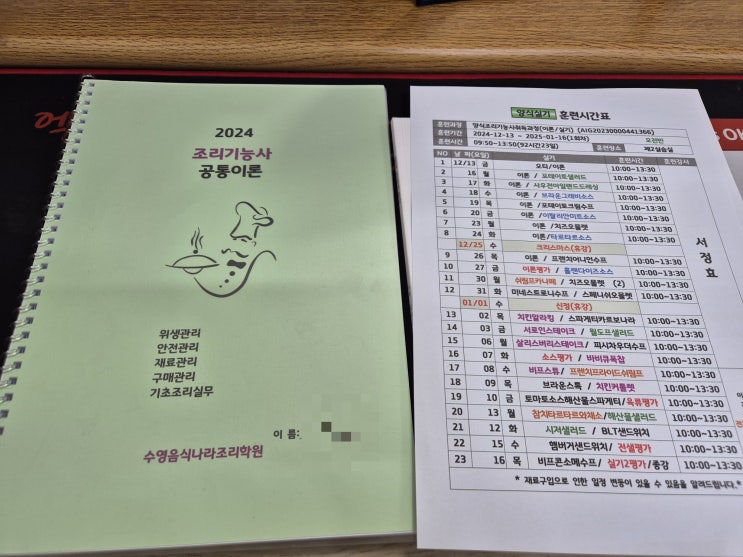 2024
조리기능사
공통이론
위생관리
안전관리
재료관리
구매관리
기초조리실무
이 름:
수영음식나라조리학원
양식실기 훈련시간표
훈련과정 양식조리기능사취득과정(이론/실기) (AIG20230000441366)
훈련기간 2024-12-13 ~ 2025-01-16(1회차) 오전반
훈련시간 09:50~13:50(92시간23일) 훈련장소 제2실습실
NO 날 짜(요일) 실기 훈련시간 훈련강사
1 12/13 금 오티/이론 10:00~13:30
2 16 월 이론 / 포테이토샐러드 10:00~13:30
3 17 화 이론 / 사우전아일랜드드레싱 10:00~13:30
4 18 수 이론 / 브라운그래비소스 10:00~13:30
5 19 목 이론 /포테이토크림수프 10:00~13:30
6 20 금 이론 /이탈리안미트소스 10:00~13:30
7 23 월 이론 /치즈오믈렛 10:00~13:30
8 24 화 이론/타르타르소스 10:00~13:30
12/25 수 크리스마스(휴강)
9 26 목 이론 / 프렌치어니언수프 10:00~13:30
10 27 금 이론평가 / 홀렌다이즈소스 10:00~13:30
11 30 월 쉬림프카나페 / 치즈오믈렛 (2) 10:00~13:30
12 31 화 미네스트로니수프 / 스페니쉬오믈렛 10:00~13:30
01/01 수 신정(휴강)
13 02 목 치킨알라킹 / 스파게티카르보나라 10:00~13:30
14 03 금 서로인스테이크 / 월도프샐러드 10:00~13:30
15 06 월 살리스버리스테이크/ 피시차우더수프 10:00~13:30
16 07 화 소스평가 / 바비큐폭찹 10:00~13:30
17 08 수 비프스튜/ 프렌치프라이드쉬림프 10:00~13:30
18 09 목 브라운스톡 / 치킨커틀렛 10:00~13:30
19 10 금 토마토소스해산물스파게티/육류평가 10:00~13:30
20 13 월 참치타르타르와채소/해산물샐러드 10:00~13:30
21 12 화 시저샐러드 / BLT샌드위치 10:00~13:30
22 15 수 햄버거샌드위치/ 전샐평가 10:00~13:30
23 16 목 비프콘소메수프/ 실기2평가/종강 10:00~13:30
서정효
* 재료구입으로 인한 일정 변동이 있을 수 있음을 알려드립니다.*